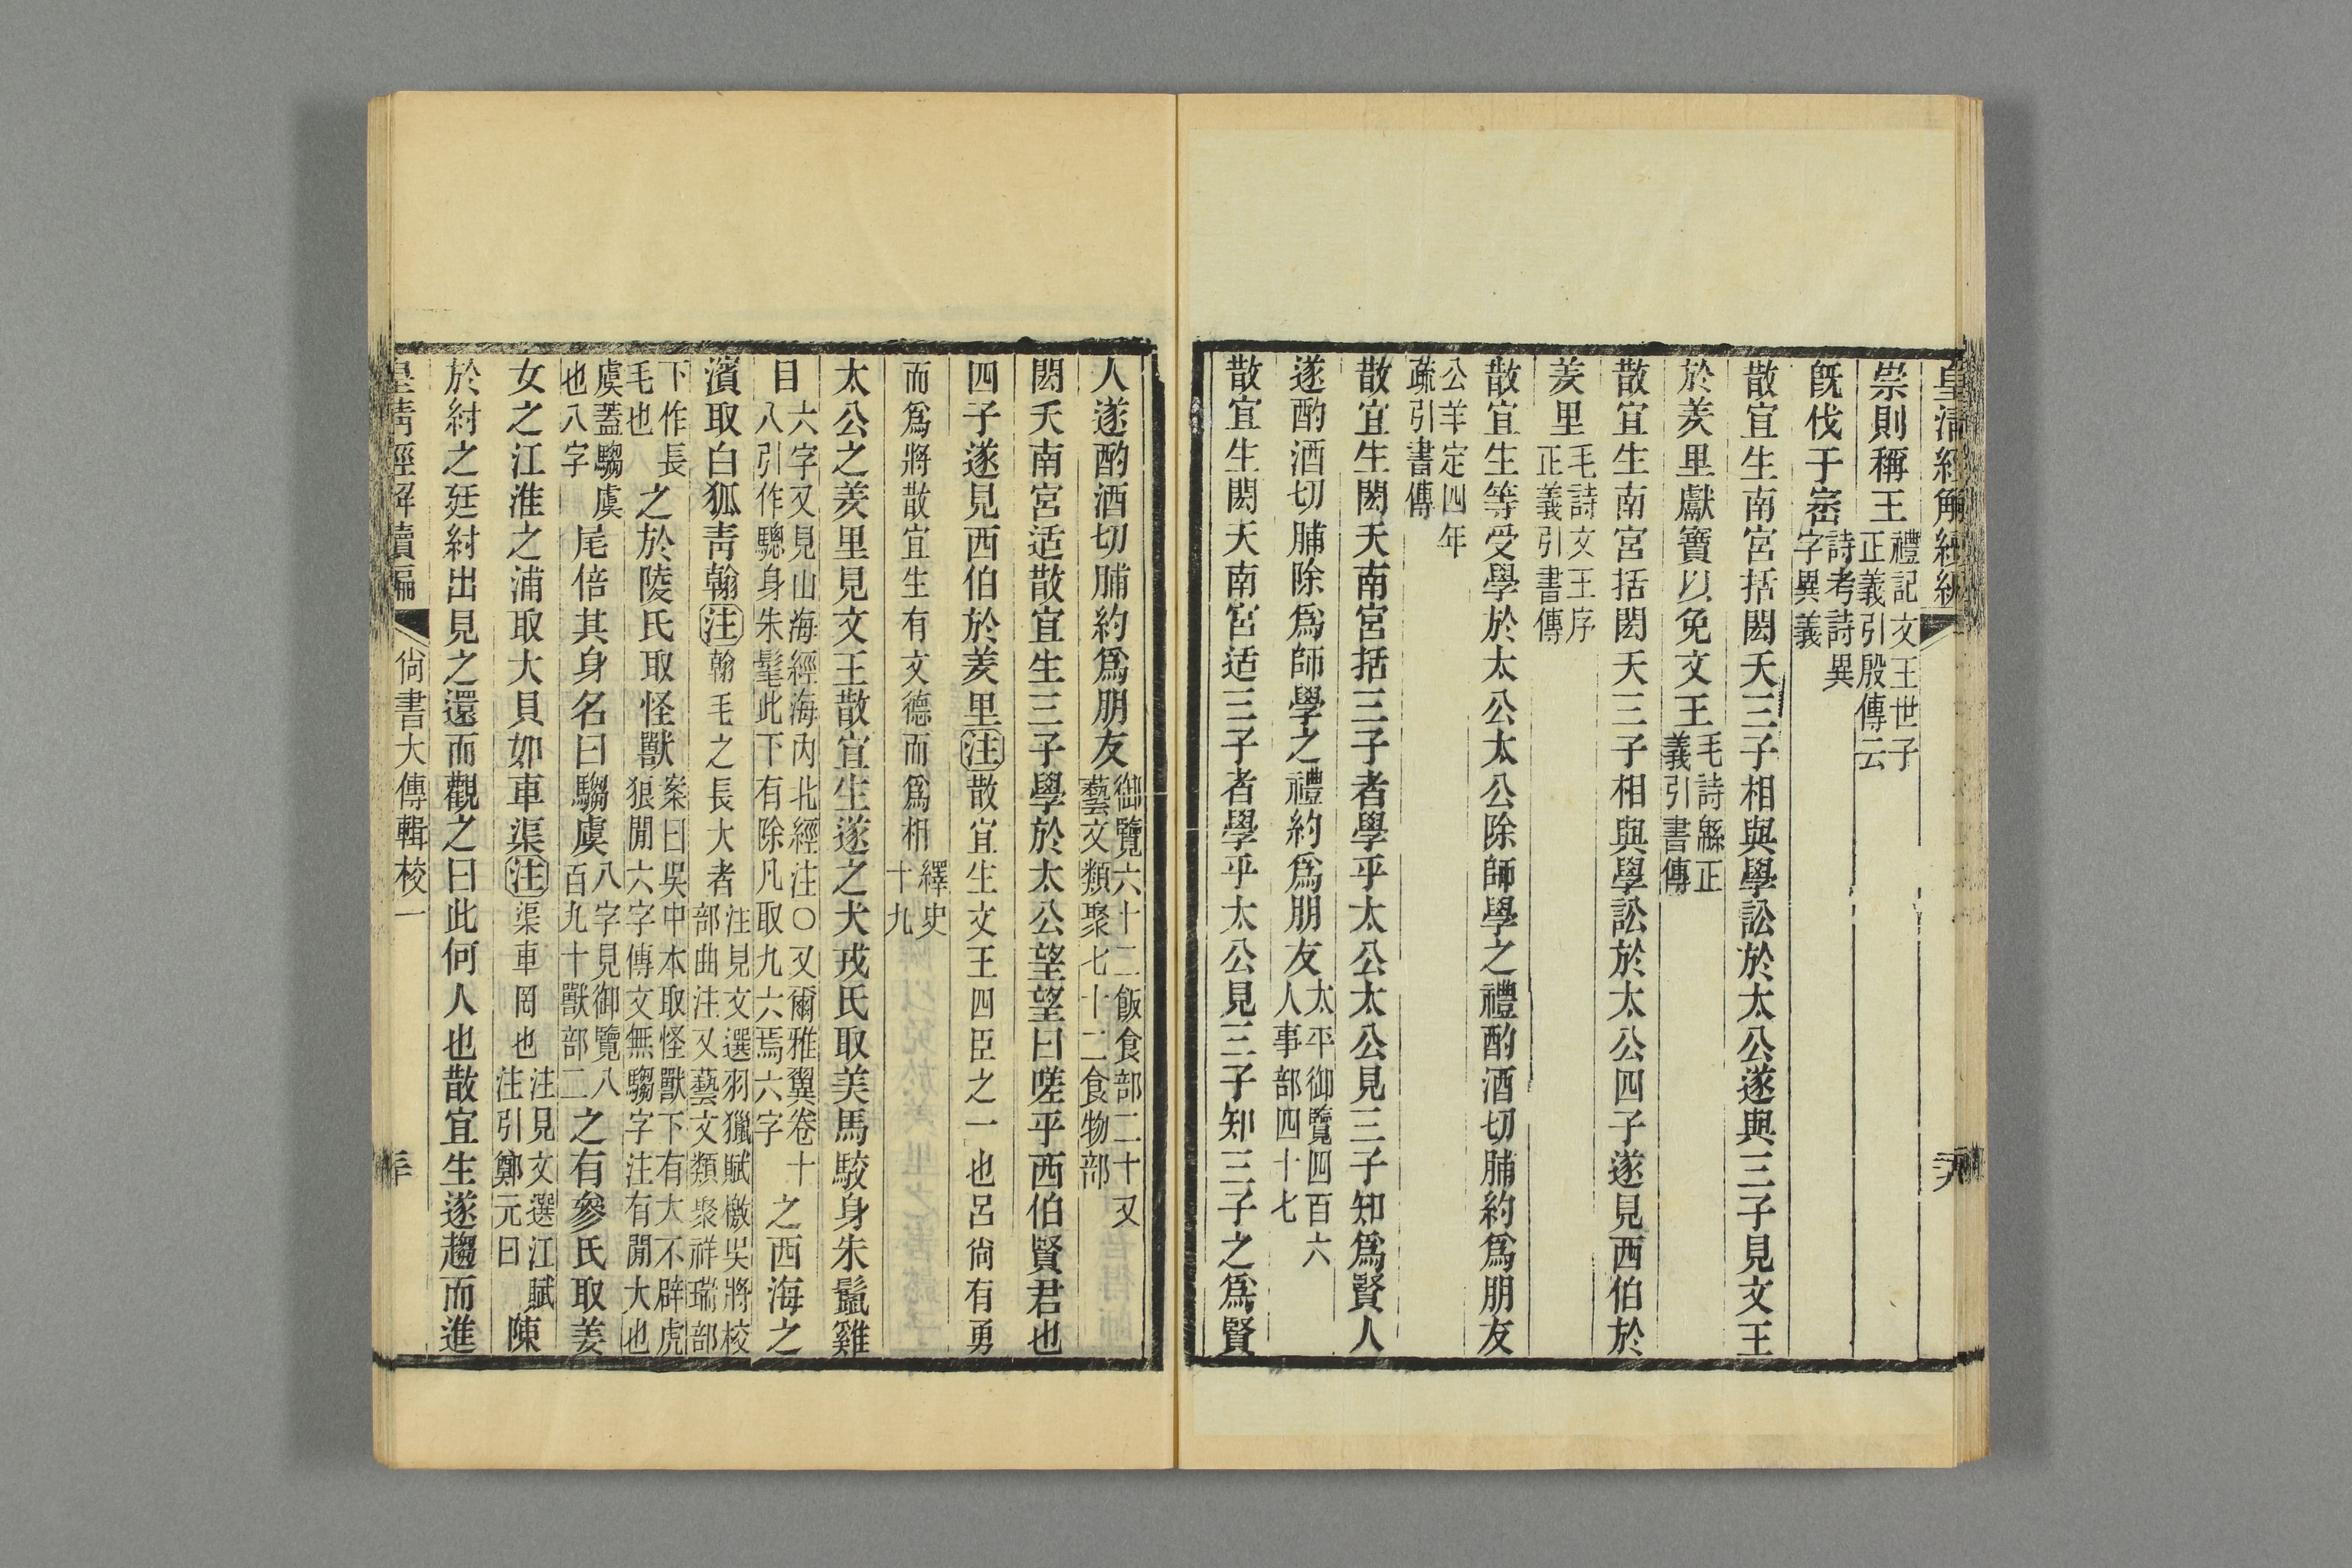 皇清經解續編
崇則稱王禮記文王世子正義引殷傳云
旣伐于崈詩考詩異字異義
散宜生南宮括閎夭三子相與學訟於太公遂與三子見文王
於羑里獻寶以免文王毛詩緜正義引書傳
散宜生南宮括閎夭三子相與學訟於太公四子遂見西伯於
羑里毛詩文王序正義引書傳
散宜生等受學於太公太公除師學之禮酌酒切脯約爲朋友
公羊定四年疏引書傳
散宜生閎夭南宮括三子者學乎太公太公見三子知爲賢人
遂酌酒切脯除爲師學之禮約爲朋友太平御覽四百六人事部四十七
散宜生閎夭南宮适三子者學乎太公見三子知三子之爲賢
人遂酌酒切脯約爲朋友御覽六十二飯食部二十又藝文類聚七十二食物部
閎夭南宮适散宜生三子學於太公望望曰嗟乎西伯賢君也
四子遂見西伯於羑里注散宜生文王四臣之一也呂尙有勇
而爲將散宜生有文德而爲相繹史十九
太公之羑里見文王散宜生遂之犬戎氏取美馬駮身朱鬣雞
目六字又見山海經海內北經注○又爾雅翼卷十八引作驄身朱髦此下有除凡取九六焉六字之西海之
濱取白狐靑翰注翰毛之長大者注見文選羽獵賦檄吳將校部曲注又藝文類聚祥瑞部
下作長毛也之於陵氏取怪獸案曰吳中本取怪獸下有大不辟虎狼閒六字傳文無騶字注有閒大也
虞蓋騶虞也八字尾倍其身名曰騶虞八字見御覽八百九十獸部二之有參氏取姜
女之江淮之浦取大貝如車渠注渠車罔也注見文選江賦注引鄭元曰陳
於紂之廷紂出見之還而觀之曰此何人也散宜生遂趨而進
皇淸經解續編 尙書大傳輯校一